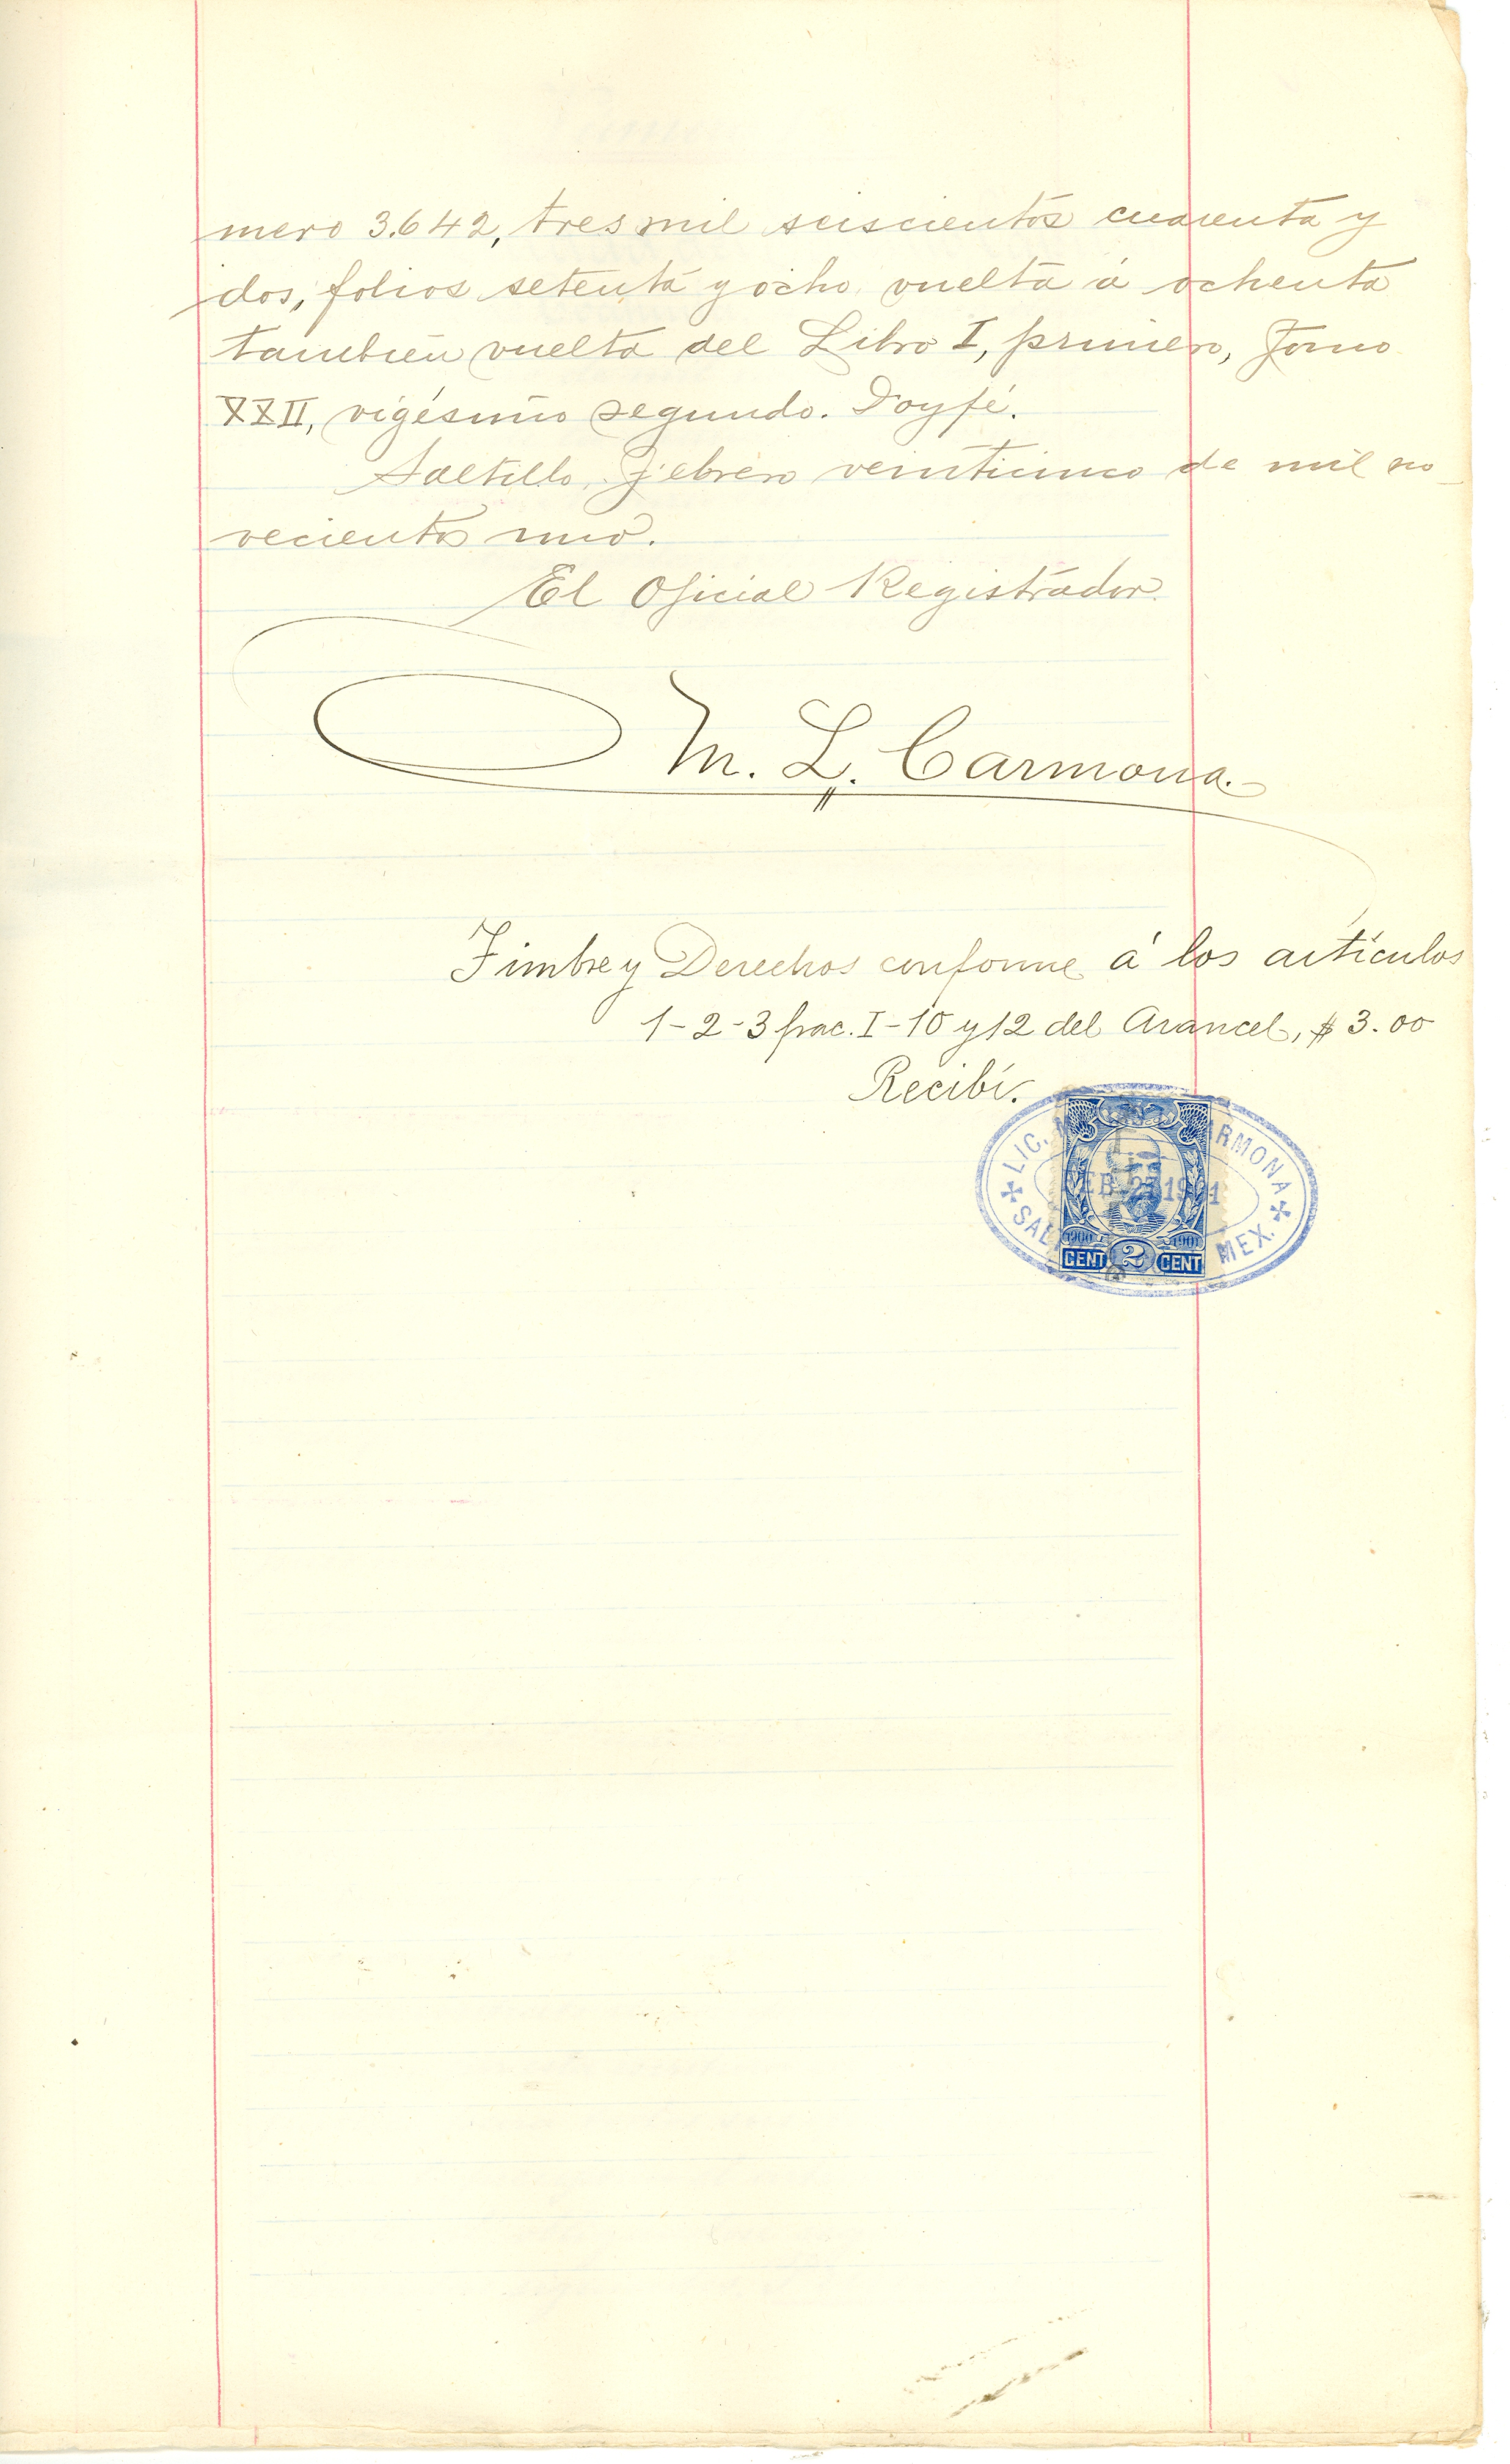 mero 3.642, tres mil seiscientos cuarenta y
dos, folios setenta y ocho vuelta á ochenta
tambien vuelta del Libro I, primero, Tomo
XXII, vigésimo segundo. Doy fé.
Saltillo, Febrero veinticinco de mil no-
vecientos uno.
El Oficial Registrador.
M. L. Carmona.
Timbre y Derechos conforme á los artículos
1-2-3 frac. I-10 y 12 del Arancel, $ 3.00
Recibí.
LIC. ARMONA
1901
1900 1901
CENT 2 CENT
MEX.